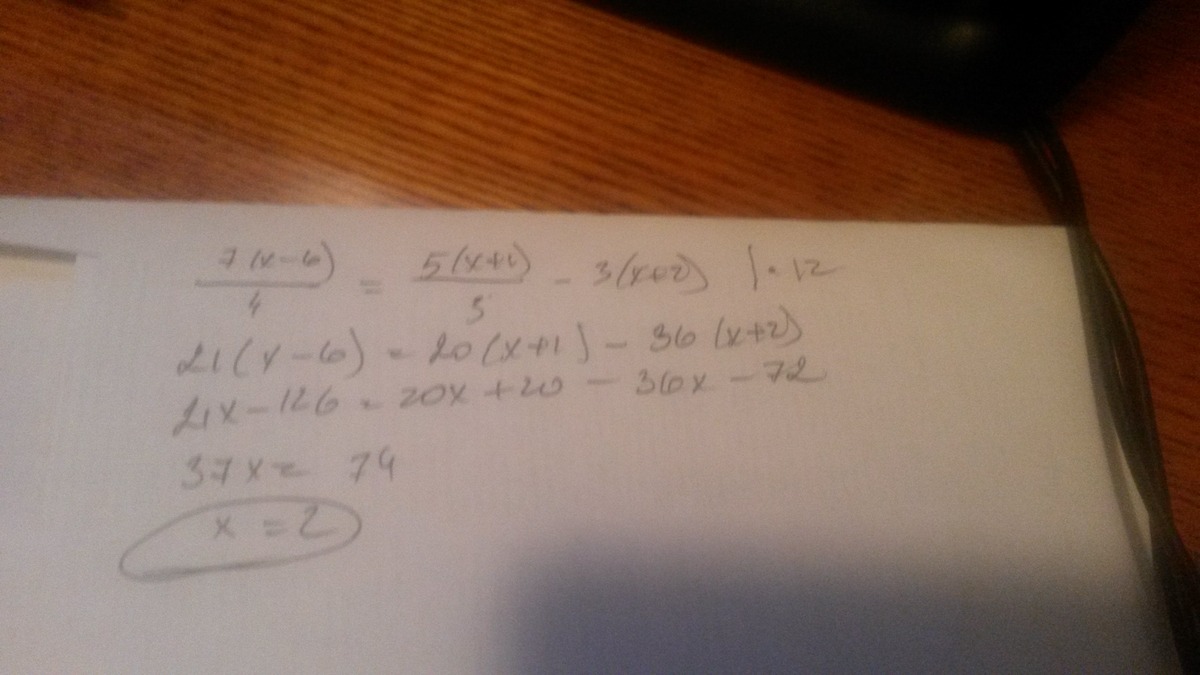 7(x-6)/4 = 5(x+1)/3 - 3(x+2) |·12
21(x-6) = 20(x+1) - 36(x+2)
21x-126 = 20x+20-36x-72
37x = 74
x = 2